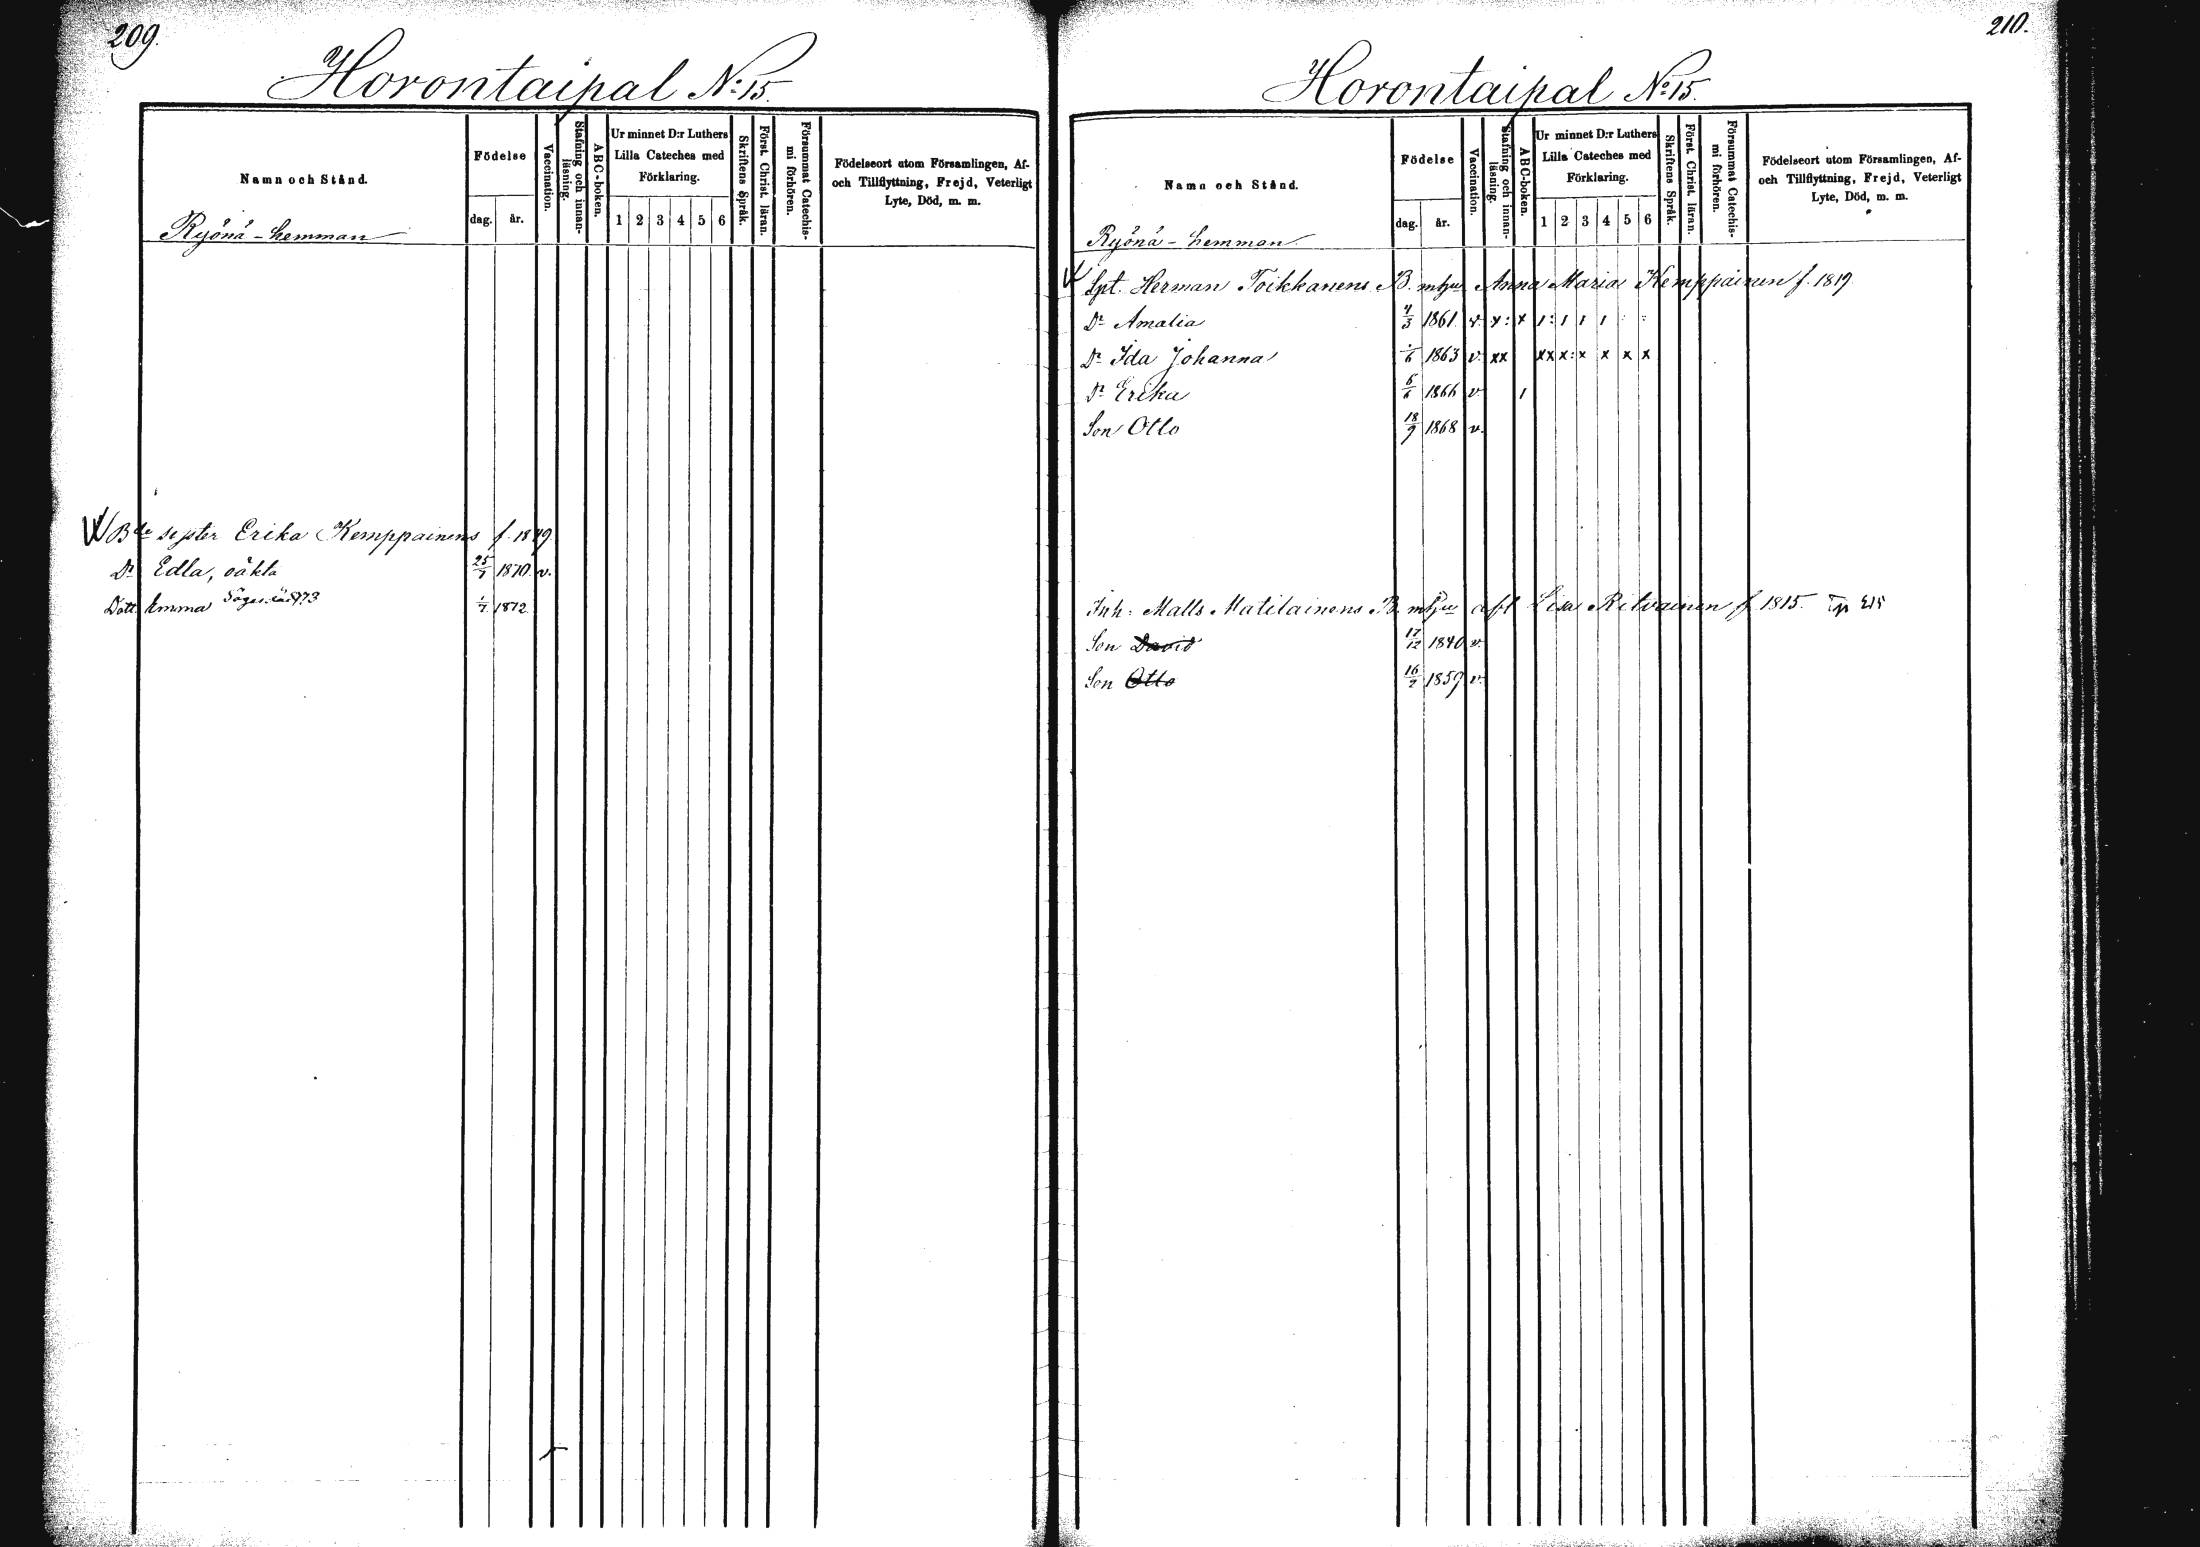 209.
Horontaipal No:15.
Namn och Stånd.
Födelse
dag.
år.
Vaccination.
Stafning och innan-
läsning.
ABC-boken.
Ur minnet D:r Luthers
Lilla Cateches med
Förklaring.
1 2 3 4 5 6
Skriftens Språk.
Först. Christ. läran.
Försummat Catechis-
mi förhören.
Födelseort utom Församlingen, Af-
och Tillflyttning, Frejd, Veterligt
Lyte, Död, m. m.
Ryönä - hemman
Bde syster Erika Kemppainens f. 1849
Dr Edla, oäkta 25/7 1870 v.
Dott. Emma 1/7 1872
210.
Horontaipal No:15.
Namn och Stånd.
Födelse
dag.
år.
Vaccination.
Stafning och innan-
läsning.
ABC-boken.
Ur minnet D:r Luthers
Lilla Cateches med
Förklaring.
1 2 3 4 5 6
Skriftens Språk.
Först. Christ. läran.
Försummat Catechis-
mi förhören.
Födelseort utom Församlingen, Af-
och Tillflyttning, Frejd, Veterligt
Lyte, Död, m. m.
Ryönä - hemman
Spt. Herman Toikkanens B. m hju Anna Maria Kemppainen f. 1819
Dr Amalia 4/3 1861 v. x : x 1 : 1 1 1
Dr Ida Johanna /6 1863 v. xx xx x : x x x x
Dr Erika 6/6 1866 v. 1
Son Otto 18/9 1868 v.
Inh: Matts Matilainens B. m hju afl Lisa Ritvainen f. 1815.
Son David 17/12 1840 v.
Son Otto 16/2 1859 v.